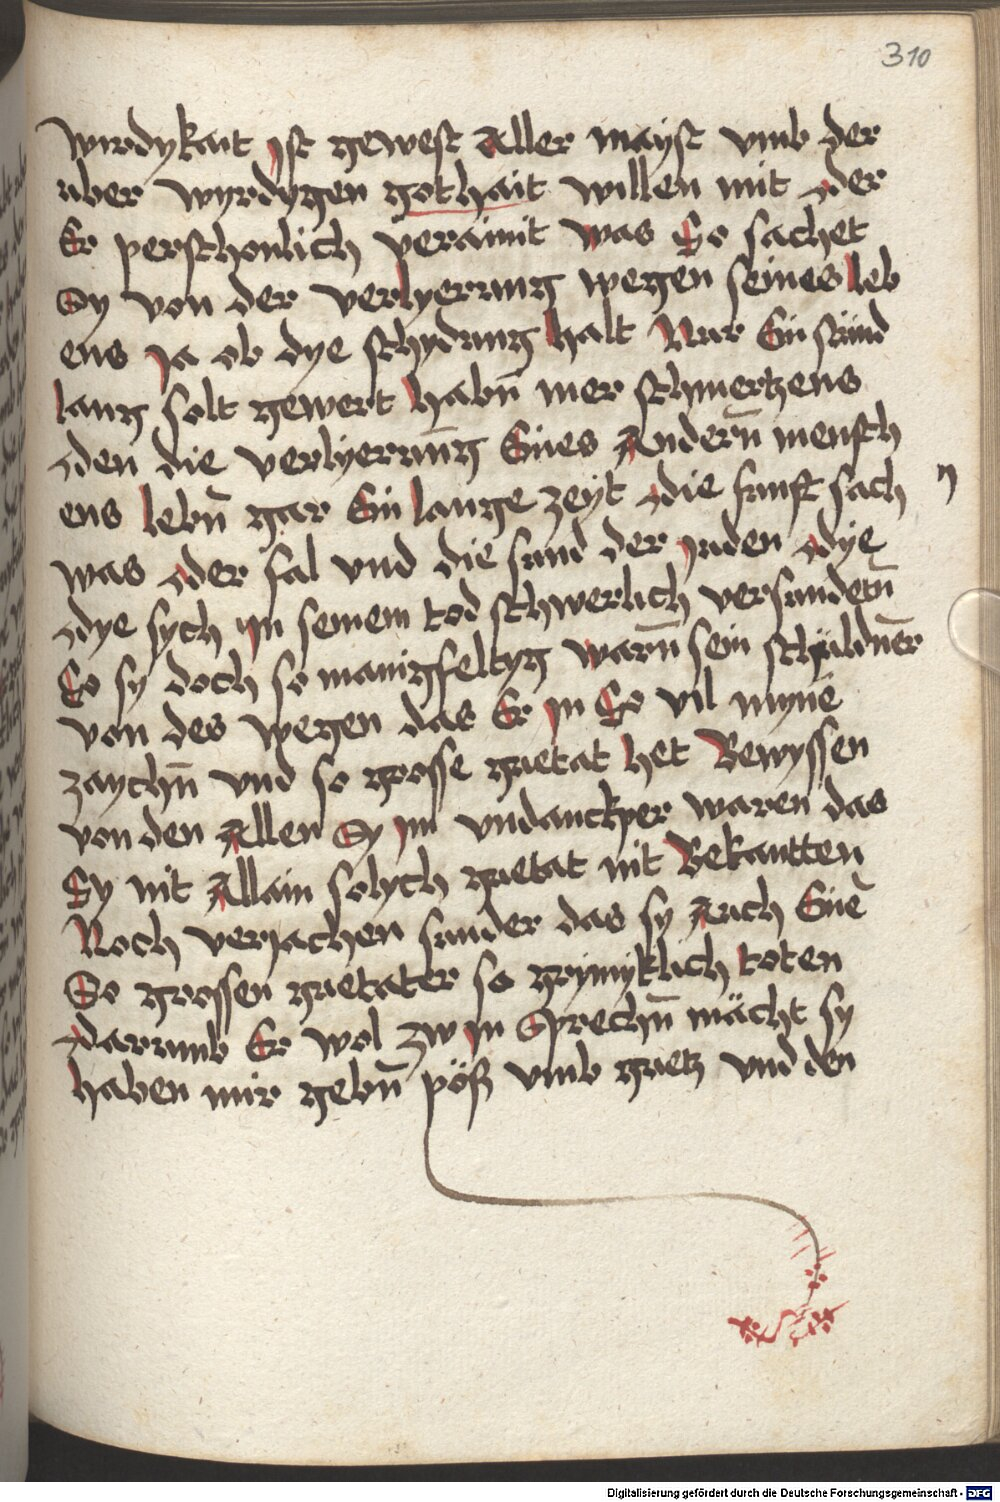 310
wirdykait ist gewest Aller mayst vmb der
uber wyrdygen gothait willen mit der
Er persthonlich veraimt was So sachet
Sy von der verlyerung wegen seines leb
ens Ja ob dye schydung halt Nur Ein stund
lang solt gewert habn̄ mer schmertzens
den die verlyerūng Eines Andern̄ mensch
ens lebn̄ gar Ein lange zeyt die funft sach
was der fal vnd die sund der Juden dye
dye sych in seinem tod schwerlich versundetn̄
So sy doch so manigfeltyg warn̄ sein schuldn̄er
von des wegen das Er in So vil mynē
zaychn̄ vnd so grosse guetat het Bewyssen
von den Allen Sy im vndanckper waren das
Sy nit Allain solych guetat nit Bekantten
Noch verjachen sunder das sy Auch Einē
So grossen guetater so grymyklich toten
darumb Er wol zw in Sprechn̄ mächt sy
haben mir gebn̄ pöß vmb guetz vnd den
Digitalisierung gefördert durch die Deutsche Forschungsgemeinschaft - DFG